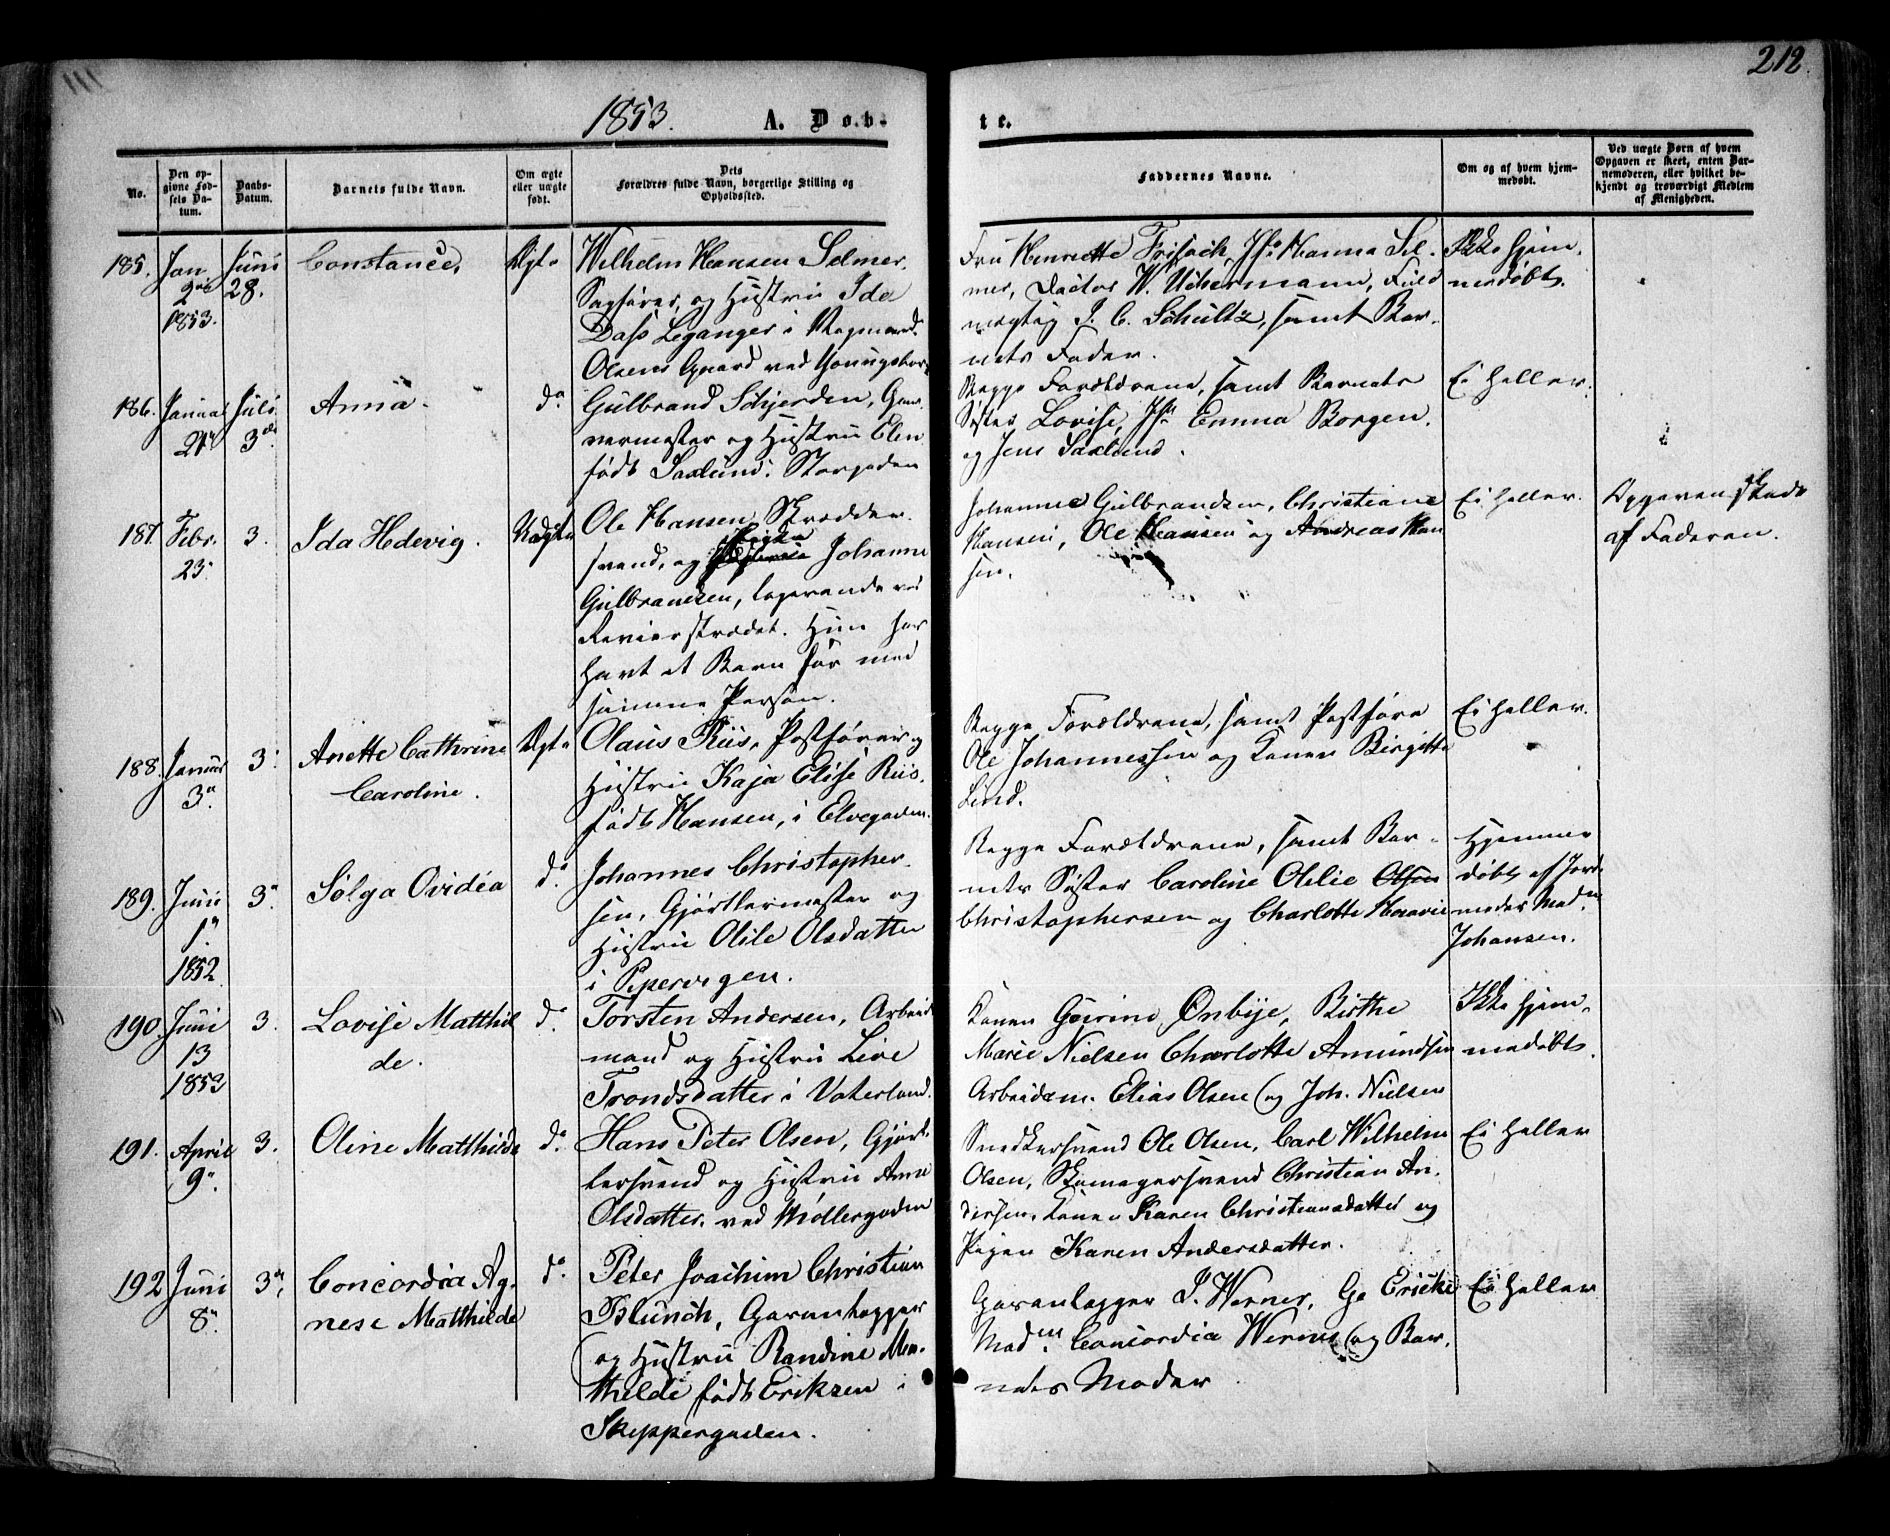 212.
1853. A. Døb- te.
No.
Den op-
givne Fød-
sels Da-
tum.
Daabs-
Datum.
Barnets fulde Navn.
Om ægte
eller uægte
født.
Dets
Forældres fulde Navn, borgerlige Stilling og
Opholdssted.
Faddernes Navne.
Om og af hvem hjem-
medøbt.
Ved uægte Børn af hvem
Opgaven er skeet, enten Bar-
nemoderen, eller hvilket be-
kjendt og troværdigt Medlem
af Menigheden.
185.
Jan.
2den
1853.
Juni
28.
Constance,
Ægte
Wilhelm Hansen Selmer,
Sagfører, og Hustru Ida
Dass Leganger i
Olsens Gaard ved Youngstor-
Fru Henriette Frisach, Jfr Hanna Sel-
mer, Doctor W. Uchermann, Fuld
mægtig J. C. Schultz, samt Bar-
nets Fader.
Ikke hjem-
medøbt.
186.
Januar
21
Juli
3die
Anna.
do
Gulbrand Schjerden, Gar-
vermester og Hustru Elen
født Saxlund. Storgaden
Begge Forældrene, samt Barnets
Søster Lovise, Jfr Emma Borgen.
og Jens Saxlund.
Ei heller.
187.
Febr.
23.
3.
Ida Hedevig.
Uægte
Ole Hansen, Skrædder-
svend, og Pigen Johanne
Gulbrandsen, logerende ved
Revierstrædet. Hun har
havt et Barn før med
samme Person.
Johanne Gulbrandsen, Christiane
Hansen, Ole Hansen og Andreas Han
sen.
Ei heller.
Opgaven skede
af Faderen.
188.
Januar
3.
3.
Anette Cathrine
Caroline.
Ægte
Olaus Riis, Postfører og
Hustru Kaja Elise Riis,
født Hansen, i Elvegaden.
Begge Forældrene, samt Postføre
Ole Johannessen og Konen Birgitte
Lind.
Ei heller.
189.
Juni
1
1852
3.
Solga Ovidea
do
Johannes Christopher-
sen, Gjørtlermester og
Hustru Olile Olsdatter
i Pipervigen.
Begge Forældrene, samt Bar-
nets Søster Caroline Olilie Olsen
Christophersen og Charlotte
Hjemme
døbt af Jord-
moder Madm
Johansen.
190.
Juni
13
1853
3.
Lovise Matthil
de.
do.
Torsten Andersen, Arbeids
mand og Hustru Live
Trondsdatter i Vaterland.
Konen Gurine Ønbye, Birthe
Marie Nielsen Charlotte Amundsen
Arbeidsm. Elias Olsen og Joh. Nielsen
Ikke hjem-
medøbt.
191.
April
9.
3.
Oline Matthilde
do.
Hans Peter Olsen, Gjørt-
lersvend og Hustru Anne
Olsdatter, ved Møllergaden
Snedkersvend Ole Olsen, Carl Wilhelm
Olsen, Skomagersvend Christian An-
dersen, Konen Karen Christiansdatter og
Pigen Karen Andersdatter.
Ei heller
192
Juni
8.
3.
Concordia Ag-
nese Matthilde
do.
Peter Joachim Christian
Blunch, Garanhegger
og Hustru Randine Ma-
thilde født Eriksen i
Skippergaden.
J. Werner, Ericke
Madm. Concordia Werner og Bar-
nets Moder
Ei heller